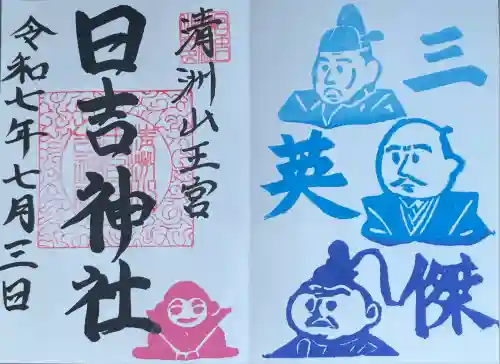 清洲山王宮
日吉神社
令和七年七月三日
三
英
傑